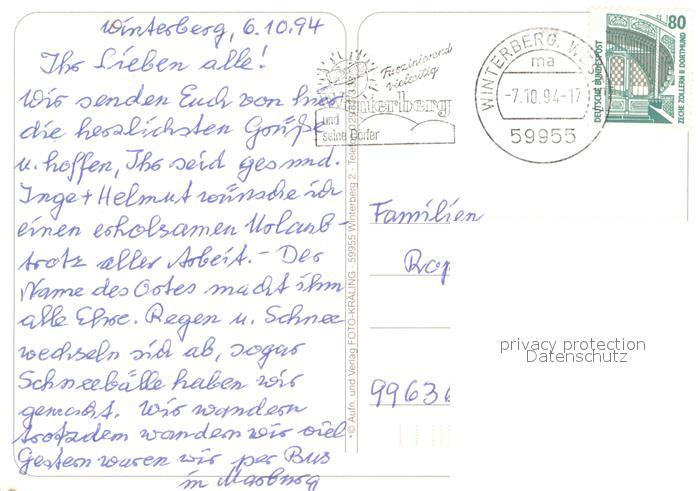 Winterberg, 6.10.94
Ihr Lieben alle!
Wir senden Euch von hier
die herzlichsten Grüße
u. hoffen, Ihr seid gesund.
Inge + Helmut wünsche ich
einen erholsamen Urlaub -
trotz aller Arbeit. - Der
Name des Ortes macht ihm
alle Ehre. Regen u. Schnee
wechseln sich ab, sogar
Schneebälle haben wir
gemacht. Wir wandern
trotzdem wandern wir viel
Gestern waren wir per Bus
in Marburg
© Aufn. und Verlag FOTO-KRÄLING - 59955 Winterberg 2 - Telefon
Faszinierend
vielseitig
Winterberg
und
seine Dörfer
WINTERBERG, WE
ma
-7.10.94-17
59955
80
DEUTSCHE BUNDESPOST
ZECHE ZOLLERN II DORTMUND
Familien
Rop
99636
privacy protection
Datenschutz